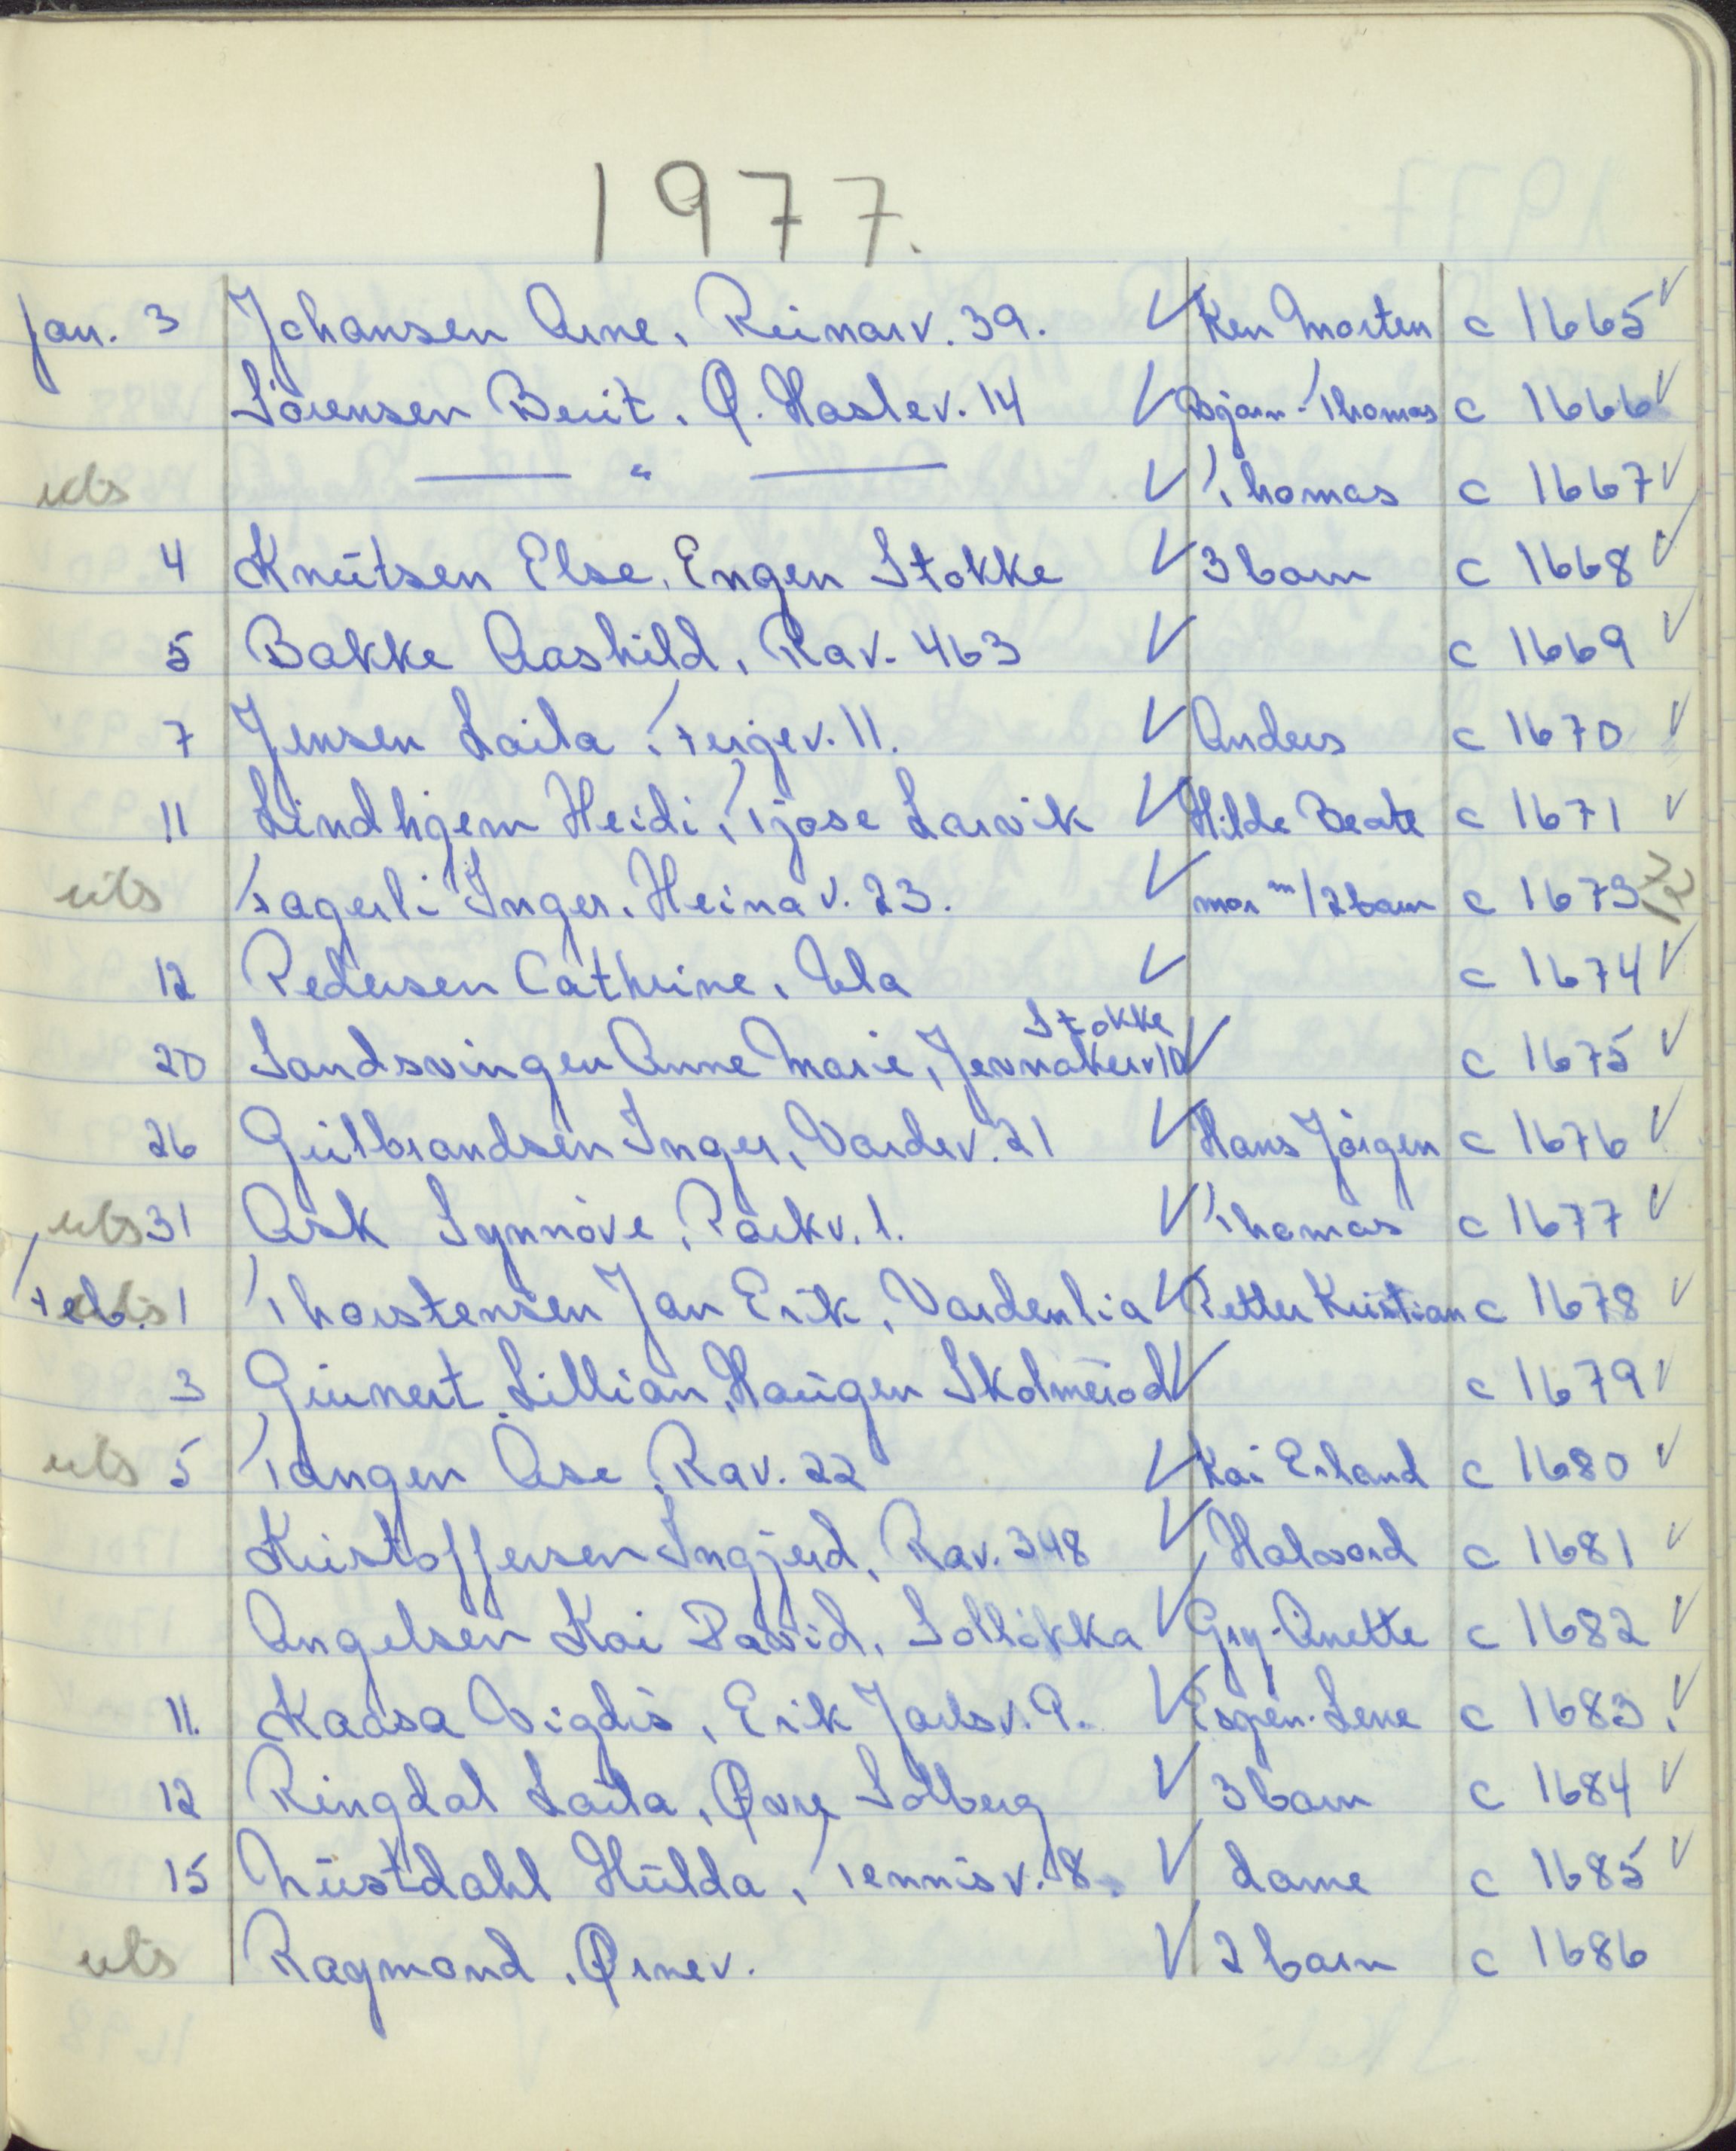 1977.
Jan. 3 Johansen Arne, Reinarv. 39. ✓ Ken Morten c 1665 ✓
Sörensen Berit, Ø. Haslev. 14 ✓ Bjørn-Thomas c 1666 ✓
uts — " — ✓ Thomas c 1667 ✓
4 Knutsen Else, Engen Stokke ✓ 3 barn c 1668 ✓
5 Bakke Aashild, Rav. 463 ✓ c 1669 ✓
7 Jensen Laila, Fergev. 11. ✓ Anders c 1670 ✓
11 Lindhjem Heidi, Tjøse Larvik ✓ Hilde Beate c 1671 ✓
uts Fagerli Inger, Heinav. 23. ✓ mor m/2 barn c 1673 72
12 Pedersen Cathrine, Ula ✓ c 1674 ✓
Stokke
20 Sandsvingen Anne Marie, Jernakerv 10 ✓ c 1675 ✓
26 Gulbrandsen Inger, Vardev. 21 ✓ Hans Jörgen c 1676 ✓
uts 31 Ask Synnöve, Parkv. 1. ✓ Thomas c 1677 ✓
Feb. uts 1 Thorstensen Jan Erik, Vardenlia ✓ Petter Kristian c 1678 ✓
3 Grunert Lillian, Haugen Skolmeröd ✓ c 1679 ✓
uts 5 Tangen Åse, Rav. 22 ✓ Kai Erland c 1680 ✓
Kristoffersen Ingjerd, Rav. 348 ✓ Halvard c 1681 ✓
Angelsen Kai David, Sollökka ✓ Gry-Anette c 1682 ✓
11. Kaasa Vigdis, Erik Jarlsv. 9. ✓ Espen-Lene c 1683. ✓
12 Ringdal Laila, Øvre Solberg ✓ 3 barn c 1684 ✓
15 Lustdahl Hulda, Tennisv. 8. ✓ dame c 1685 ✓
uts Raymond, Ørnev. ✓ 2 barn c 1686